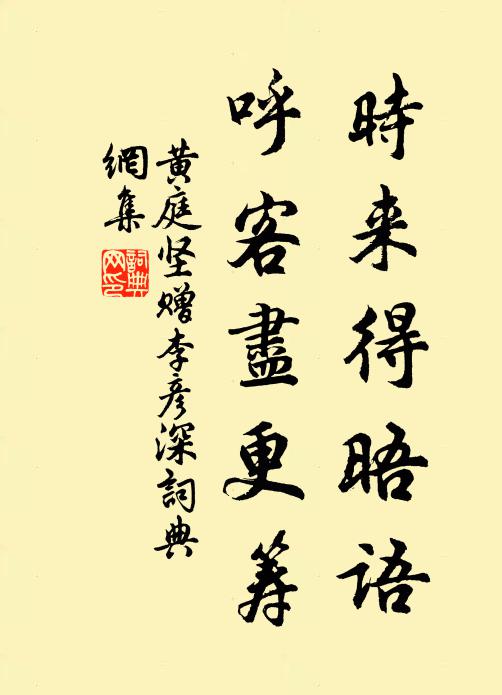 時来得晤語
呼客盡更筹
黄庭坚赠李彦深詞典
網集
詞典
网印